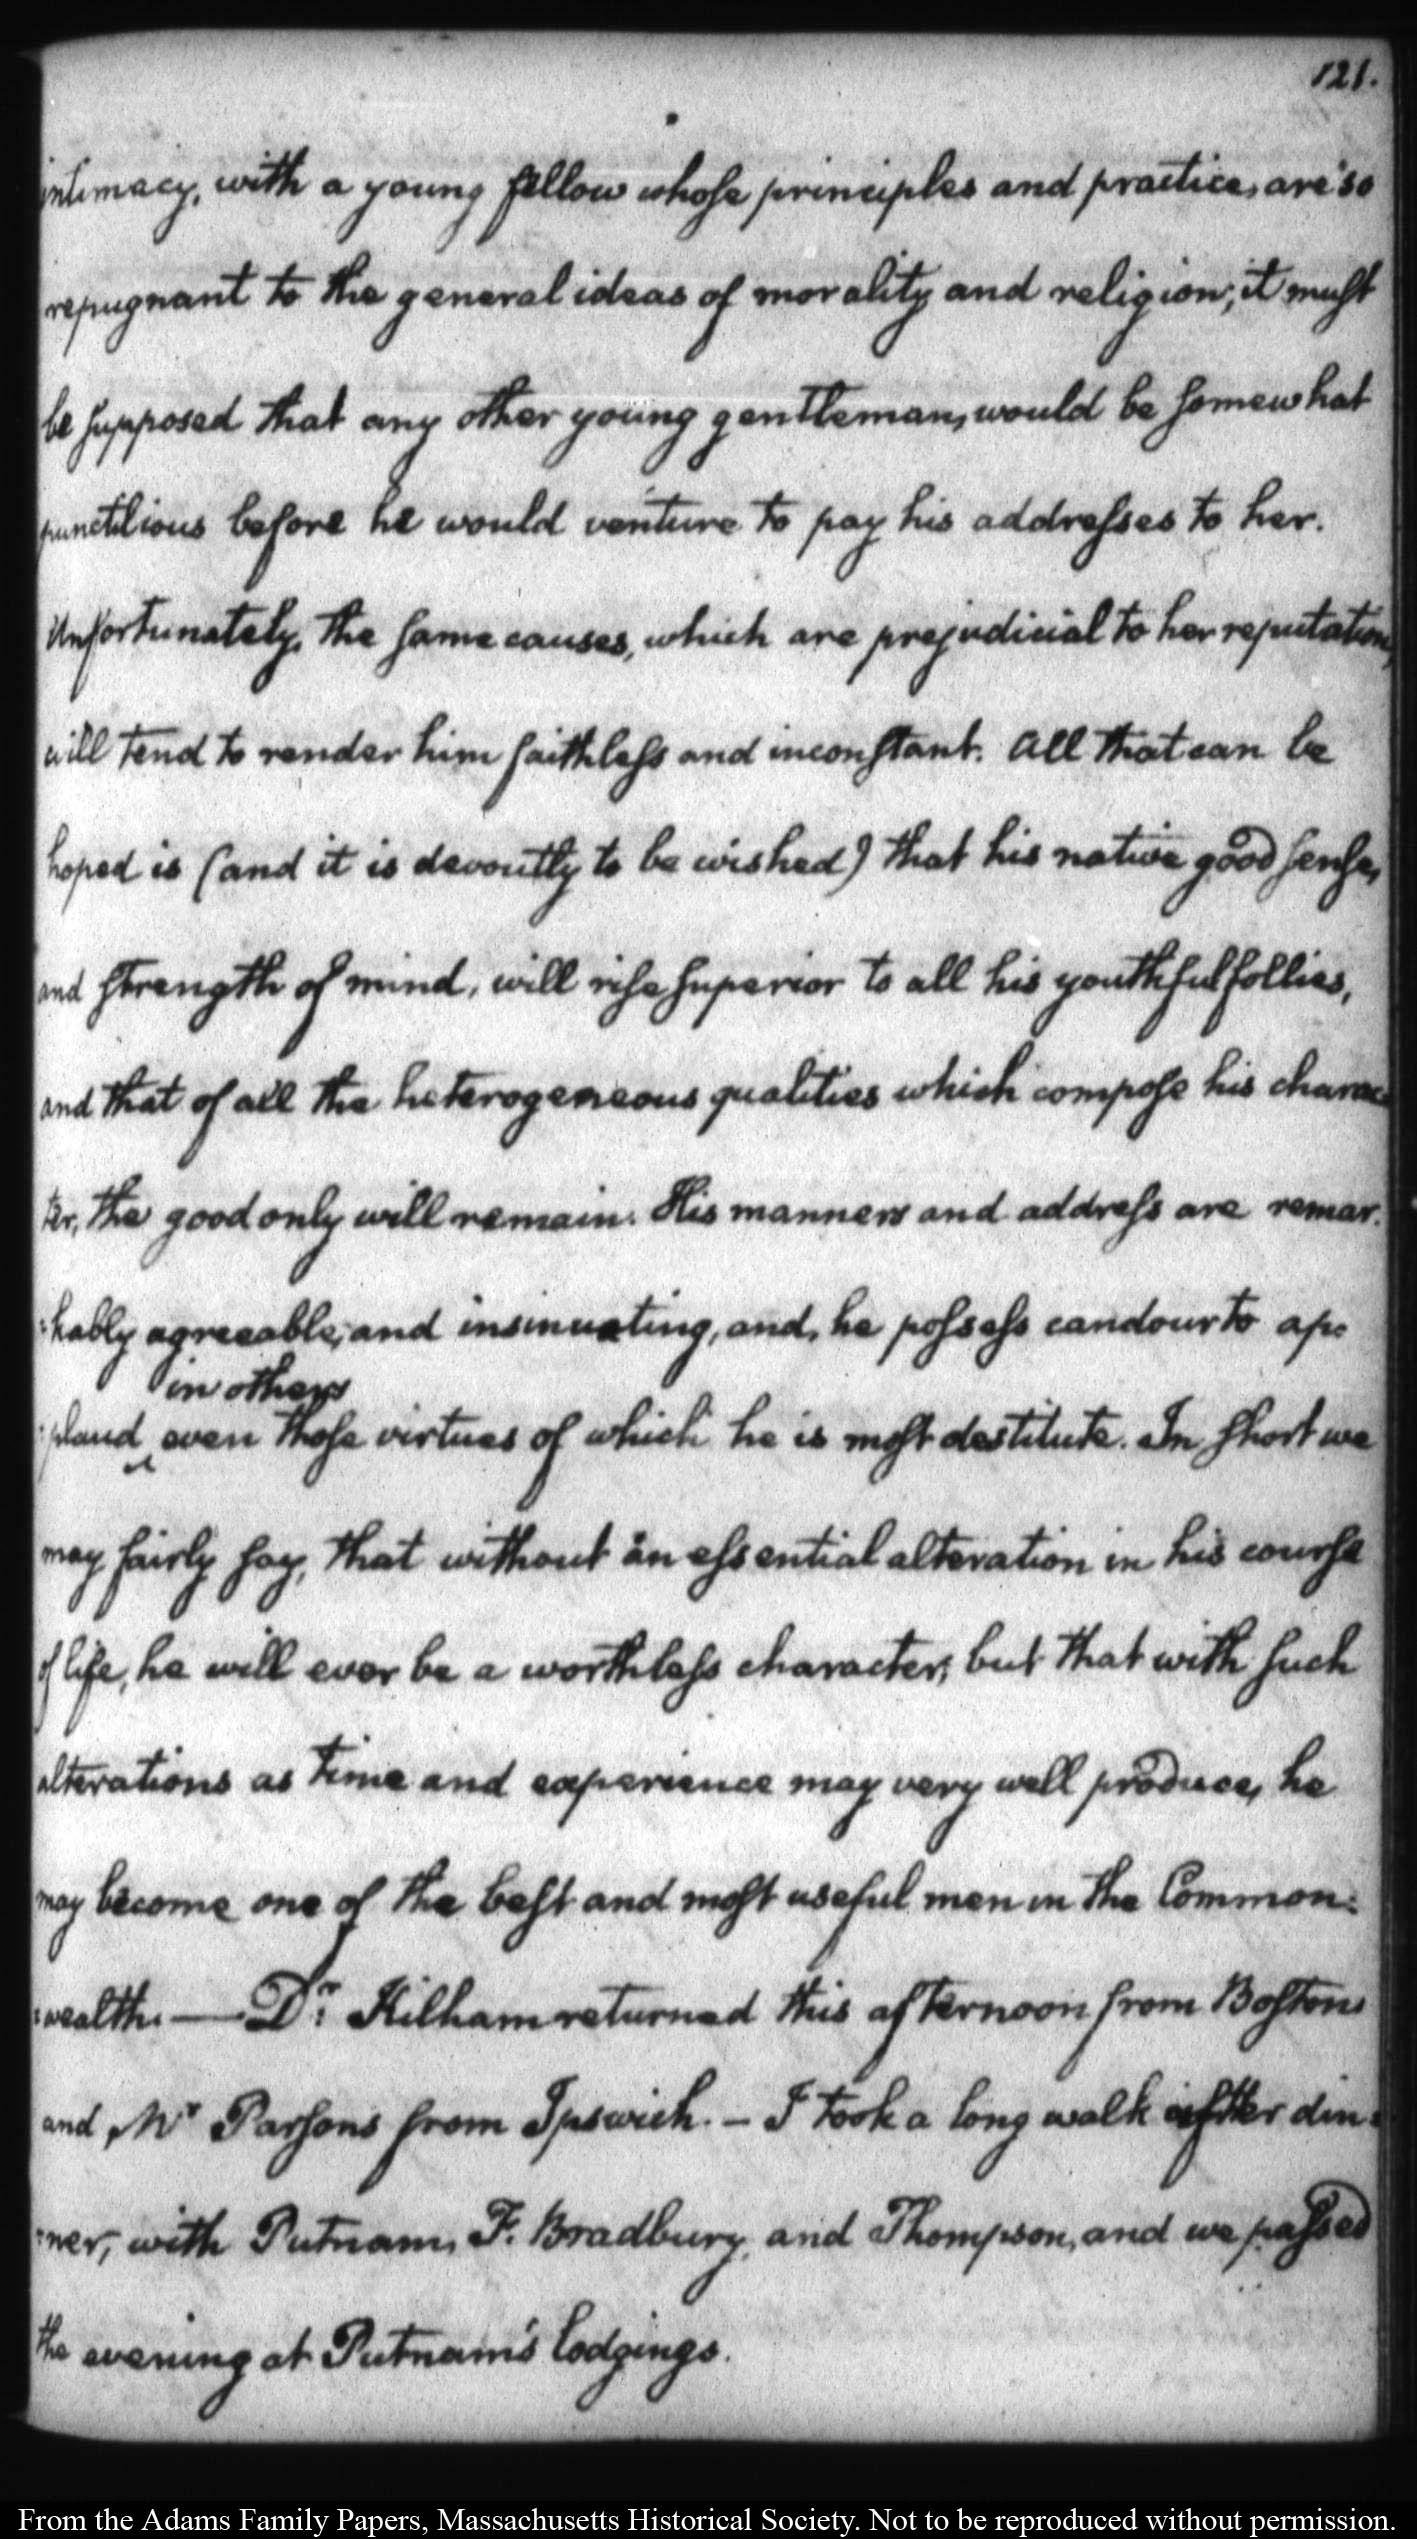 121.
intimacy, with a young fellow whose principles and practice, are so
repugnant to the general ideas of morality and religion; it must
be supposed that any other young gentleman, would be somewhat
punctilious before he would venture to pay his addresses to her.
Unfortunately, the same causes, which are prejudicial to her reputation,
will tend to render him faithless and inconstant. All that can be
hoped is (and it is devoutly to be wished) that his native good sense,
and strength of mind, will rise superior to all his youthful follies,
and that of all the heterogeneous qualities which compose his charac
ter, the good only will remain. His manners and address are remar.
:kably agreeable, and insinuating, and, he possess candour to ap:
in others
:plaud ‸ even those virtues of which he is most destitute. In short we
may fairly say, that without an essential alteration in his course
of life, he will ever be a worthless character, but that with such
alterations as time and experience may very well produce, he
may become one of the best and most useful men in the Common:
:wealth. — Dr. Kilham returned this afternoon from Boston
and Mr Parsons from Ipswich. — I took a long walk after din:
:ner, with Putnam, F. Bradbury, and Thompson, and we passed
the evening at Putnam's lodgings.
From the Adams Family Papers, Massachusetts Historical Society. Not to be reproduced without permission.